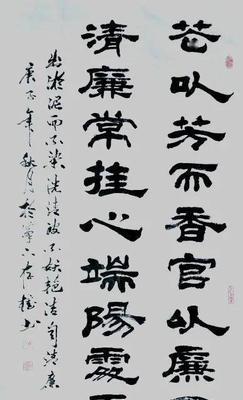 花以芳而香官以廉
清廉常挂心端陽
出淤泥而不染 清 不妖艳洁自清廉
庚子年秋月於 书